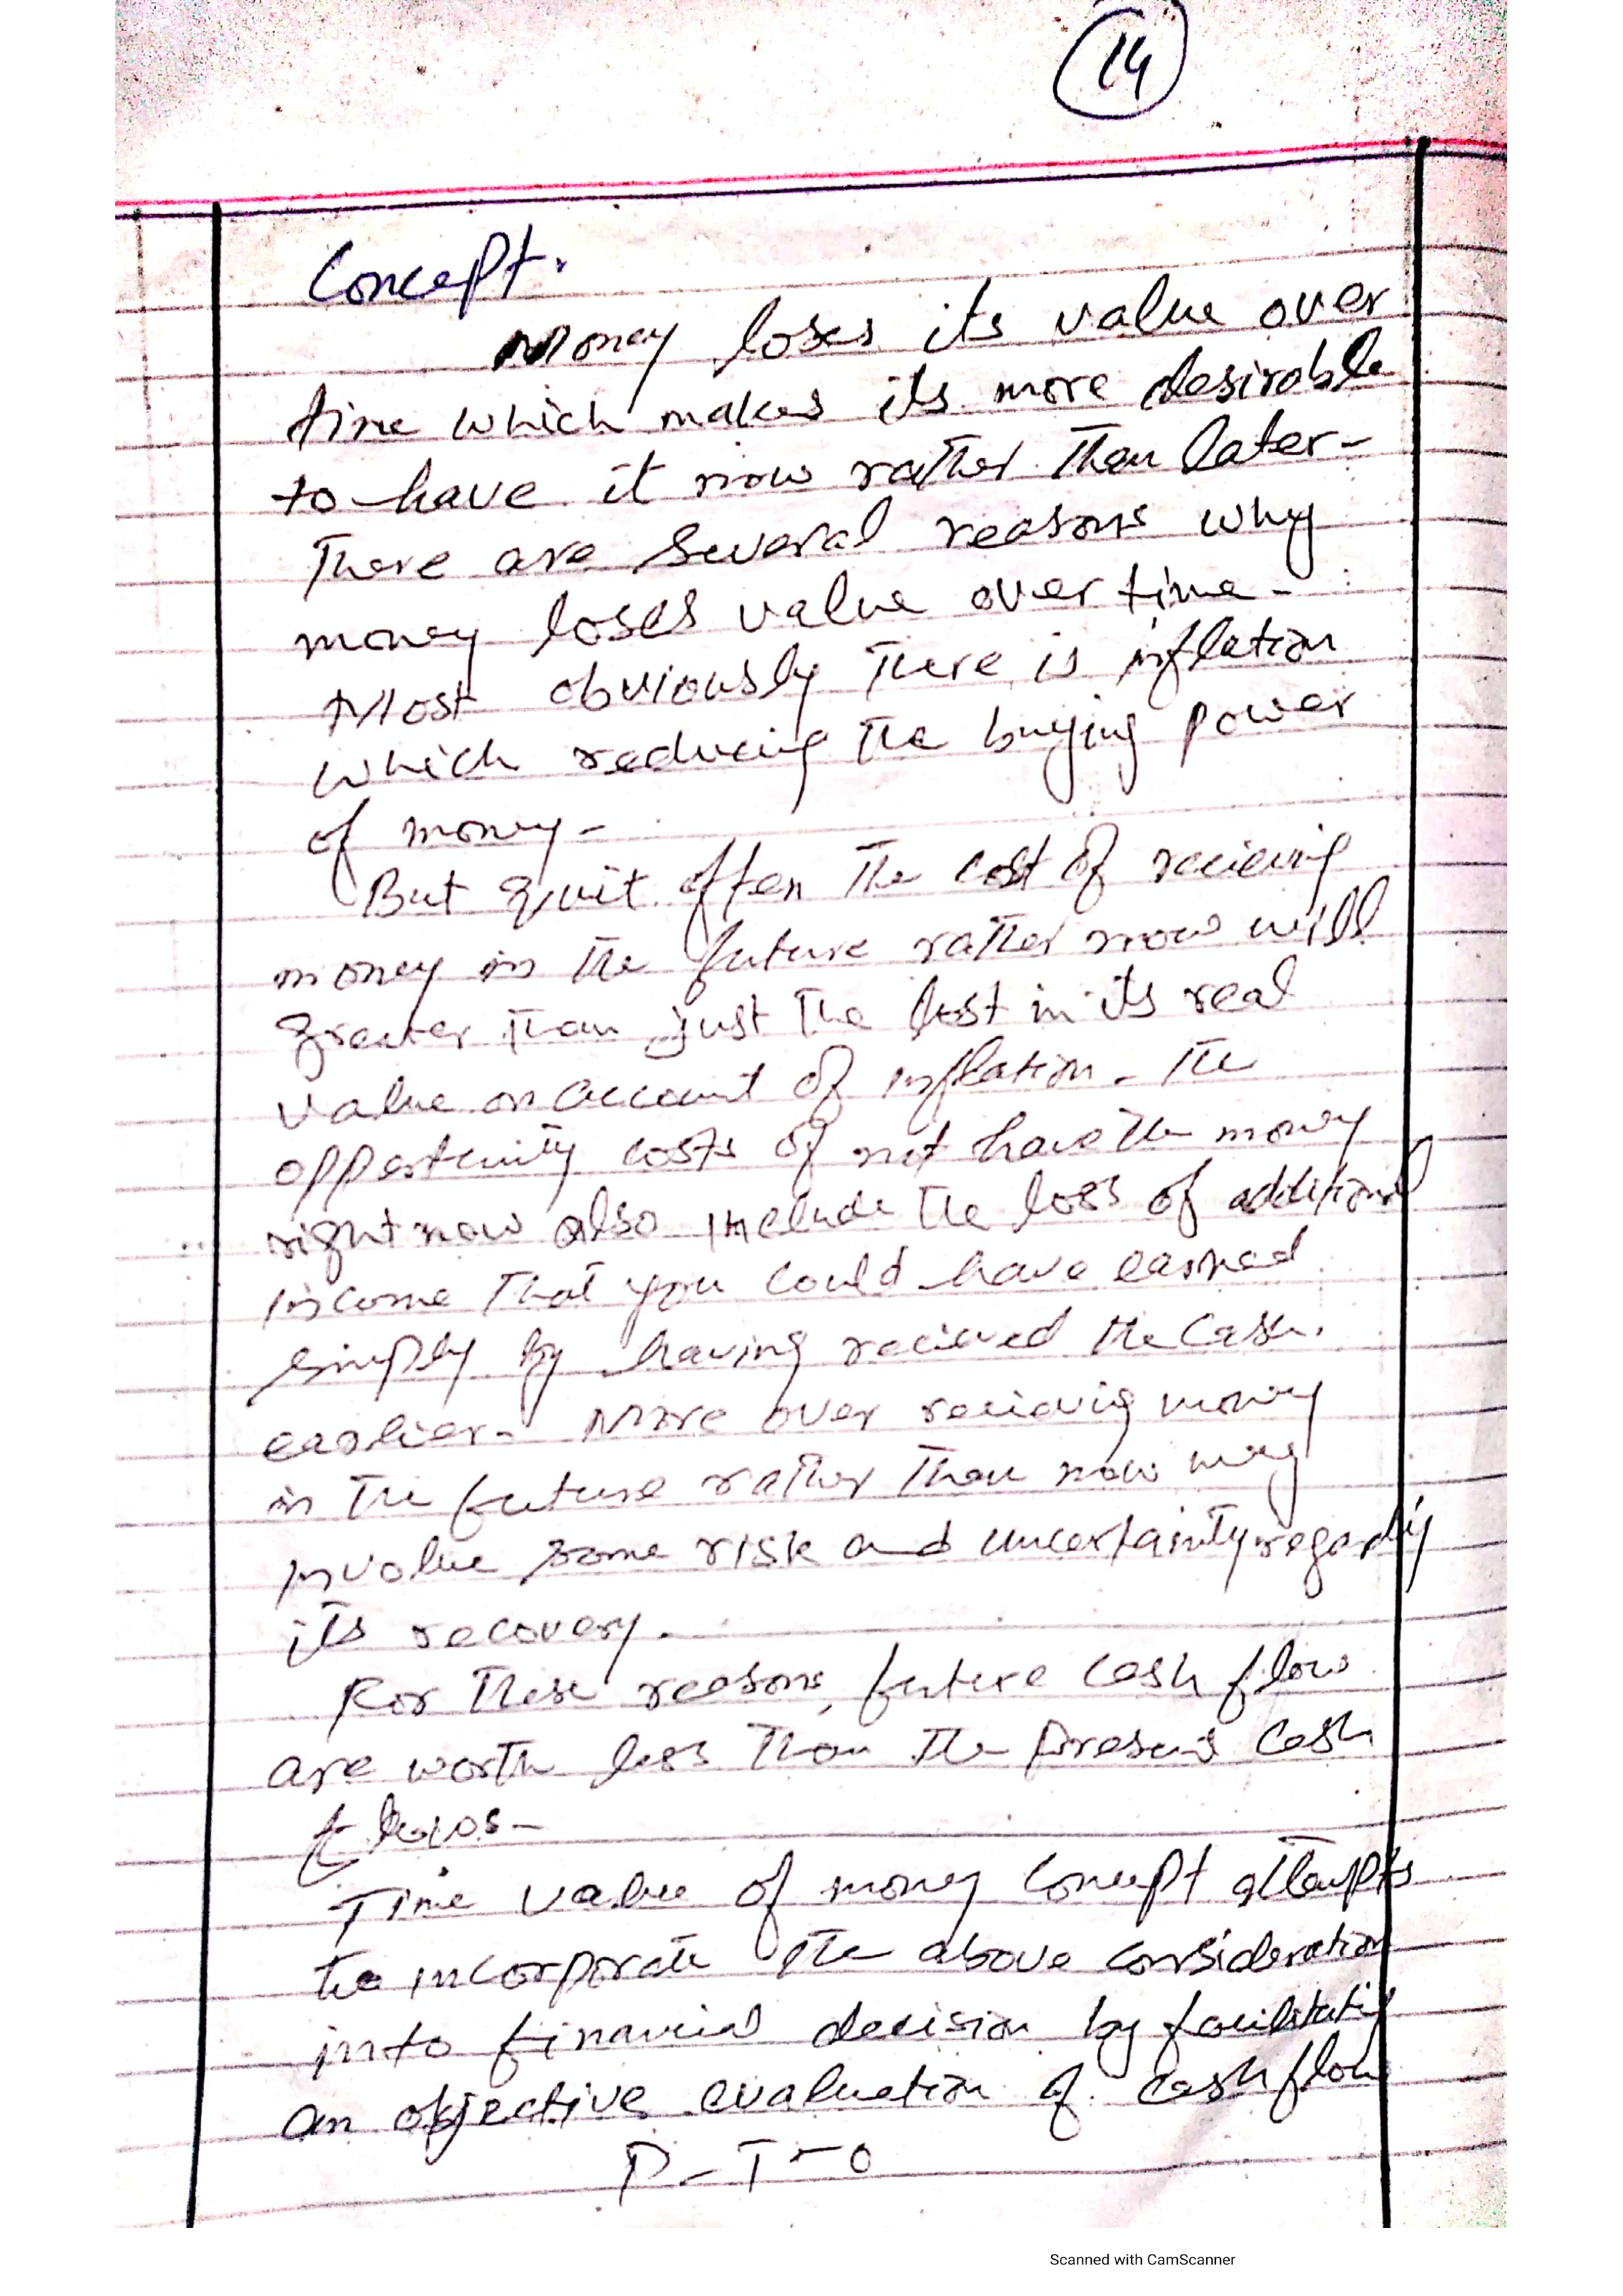 14
Concept.
Money loses its value over
time which makes its more desirable
to have it now rather than later-
There are several reasons why
money loses value over time-
Most obviously there is inflation
which reducing the buying power
of money-
But quit often the cost of recieving
money in the future rather now will
greater than just the lost in its real
value on account of inflation- The
opportunity costs of not have the money
right now also include the loss of additional
income that you could have earned
simply by having recieved the cash.
earlier- More over recieving money
in the future rather than now may
involve some risk and uncertainty regarding
its recovery.
For these reasons, future cash flow
are worth less than the present cash
flows-
Time value of money concept attempts
to incorporate the above consideration
into financial decision by facilitating
an objective evaluation of cash flow
P-T-O
Scanned with CamScanner